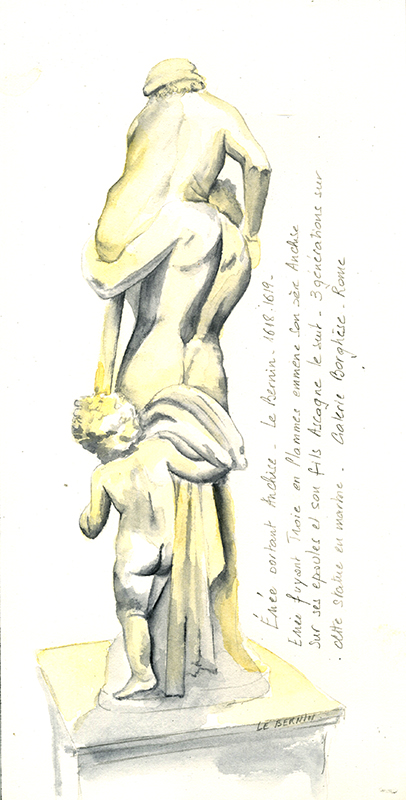 Énée portant Anchise - Le Bernin - 1618-1619 -
Enée fuyant Troie en flammes emmène son père Anchise
sur ses épaules et son fils Ascagne le suit - 3 générations sur
cette statue en marbre. Galerie Borghèse - Rome
LE BERNIN